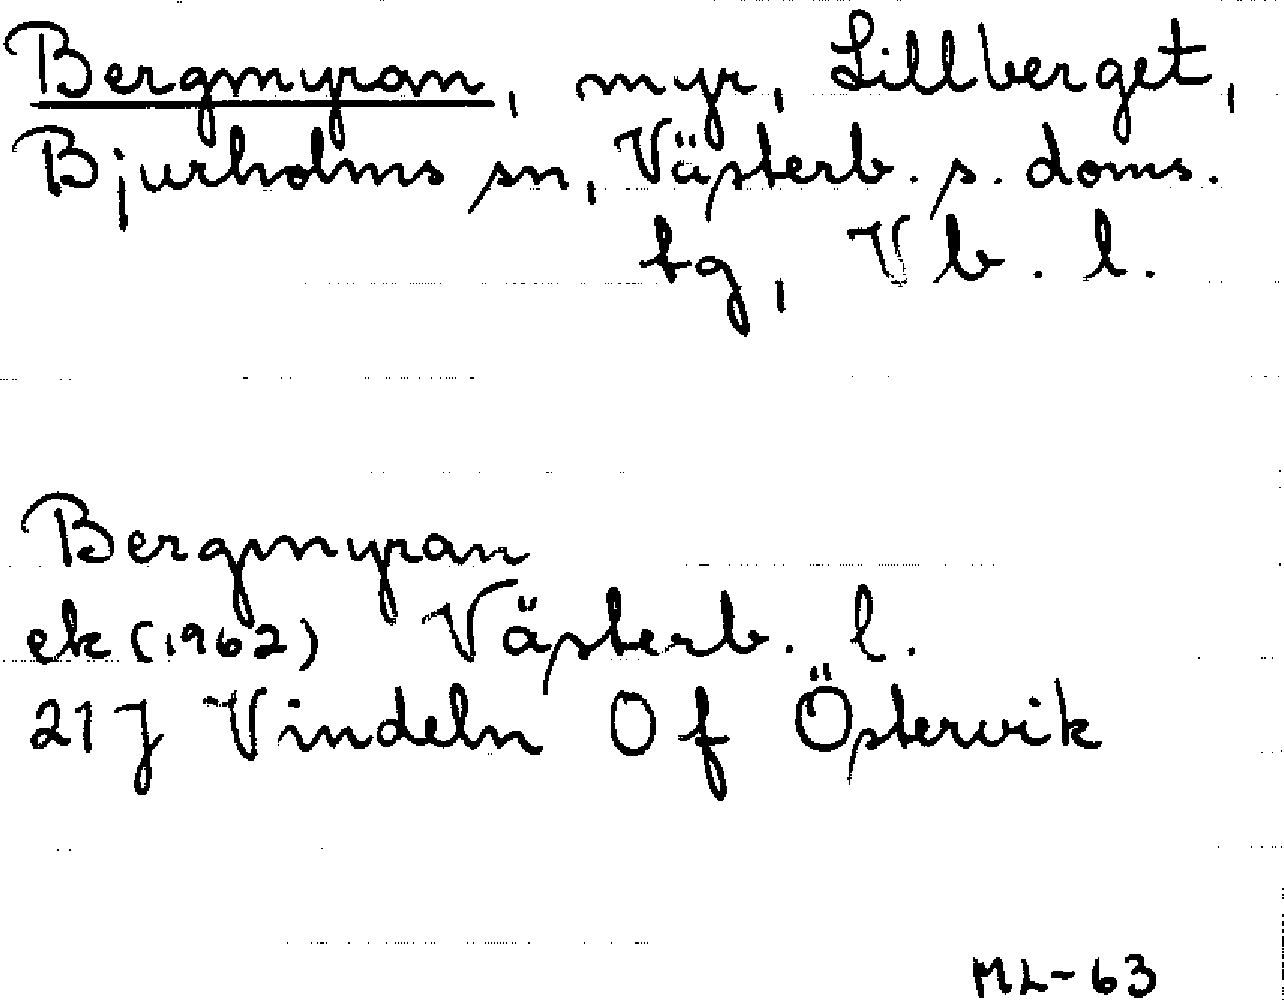 Bergmyran, myr, Lillberget,
Bjurholms sn, Västerb. s. doms.
tg, Vb. l.
Bergmyran
ek (1962) Västerb. l.
21 J Vindeln 0 f Östervik
ML-63